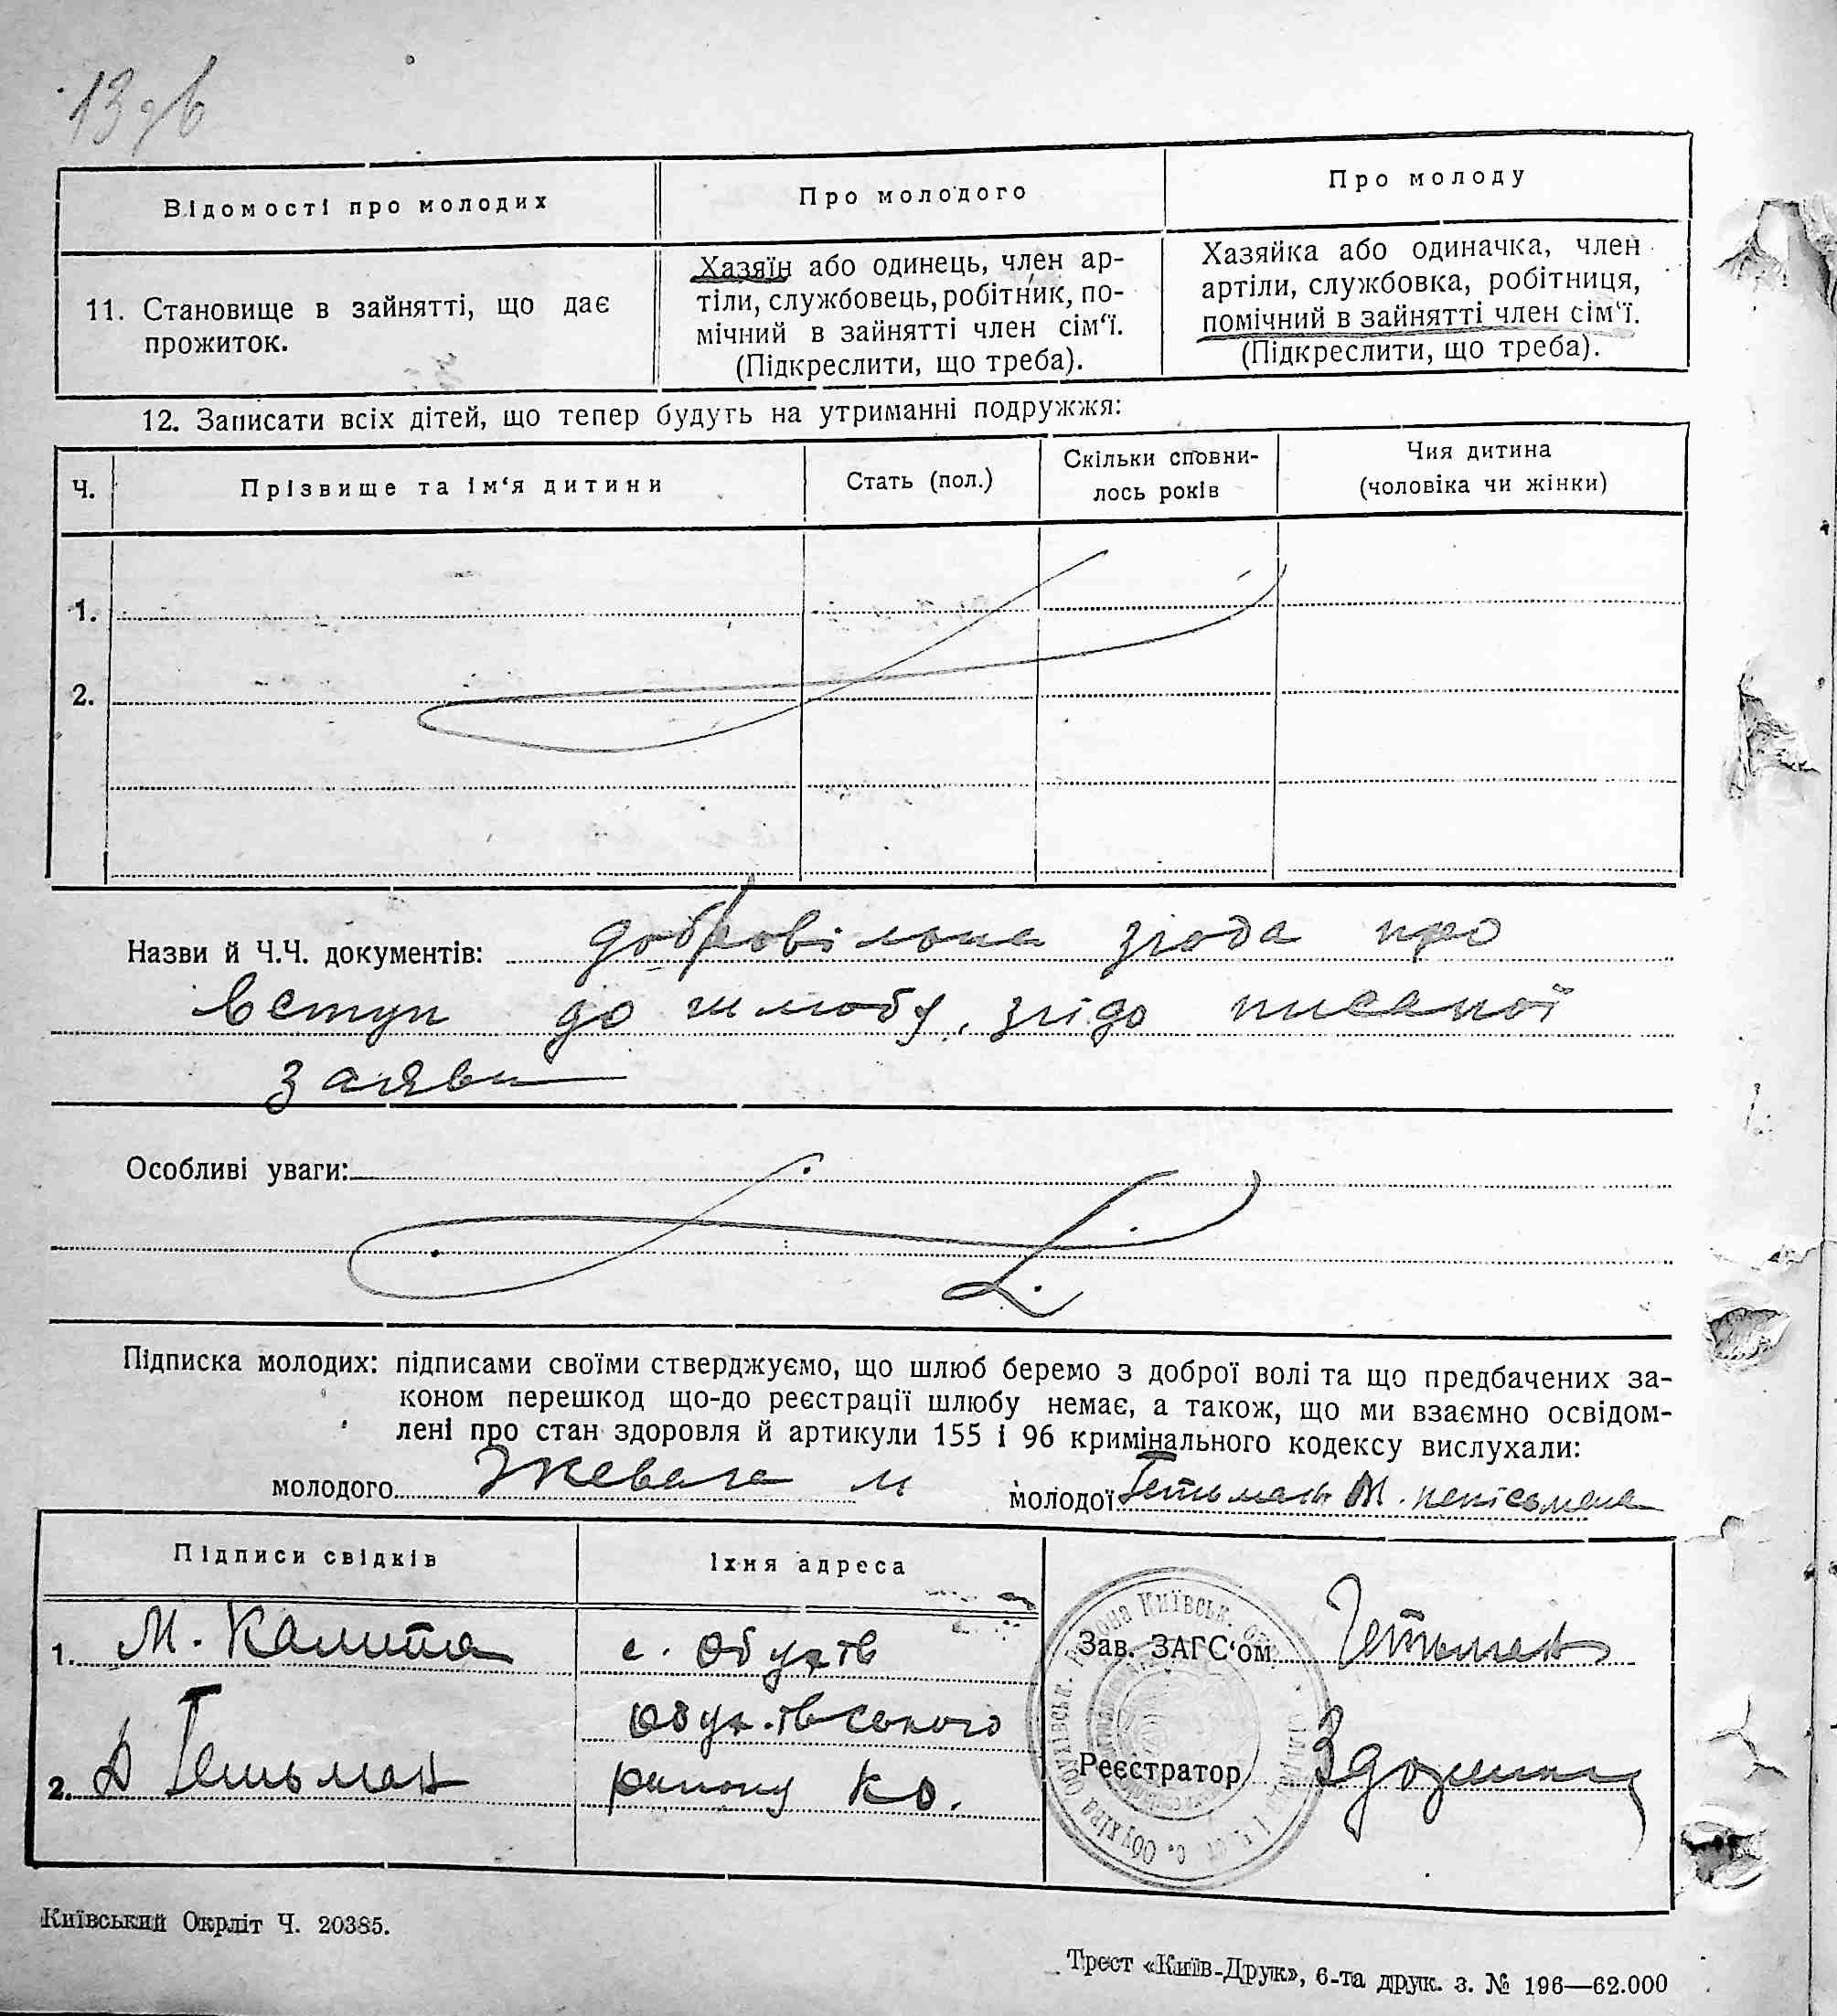 13 зв
Відомості про молодих
Про молодого
Про молоду
11. Становище в зайнятті, що дає
прожиток.
Хазяїн або одинець, член ар-
тіли, службовець, робітник, по-
мічний в зайнятті член сім‘ї.
(Підкреслити, що треба).
Хазяйка або одиначка, член
артіли, службовка, робітниця,
помічний в зайнятті член сім‘ї.
(Підкреслити, що треба).
12. Записати всіх дітей, що тепер будуть на утриманні подружжя:
Ч.
Прізвище та ім‘я дитини
Стать (пол.)
Скільки сповни-
лось років
Чия дитина
(чоловіка чи жінки)
1.
2.
Назви й Ч.Ч. документів: добровільна згода про
вступ до шлюбу, згідо писаної
заяви
Особливі уваги:
Підписка молодих: підписами своїми стверджуємо, що шлюб беремо з доброї волі та що предбачених за-
коном перешкод що-до реєстрації шлюбу немає, а також, що ми взаємно освідом-
лені про стан здоровля й артикули 155 і 96 кримінального кодексу вислухали:
молодого Жевага М
молодої Гетьман М. неписьмена
Підписи свідків
Їхня адреса
1. М. Калита
с. Обухів
Зав. ЗАГС‘ом Гетьман
Обухівського
2. Д Гетьман
району КО.
Реєстратор
Київський Окрліт Ч. 20385.
Трест «Київ-Друк», 6-та друк. з. № 196—62.000